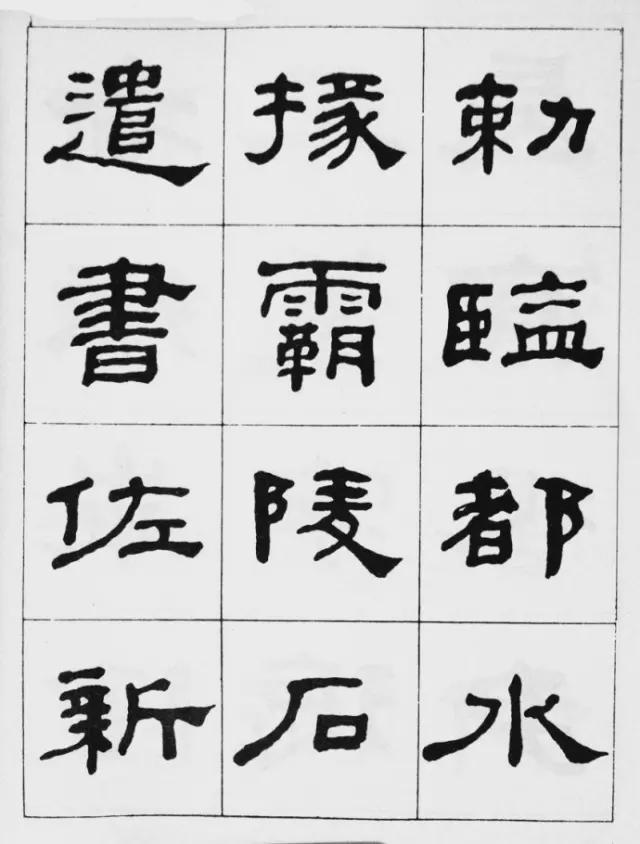 勅監都水
掾霸陵石
遣書佐新